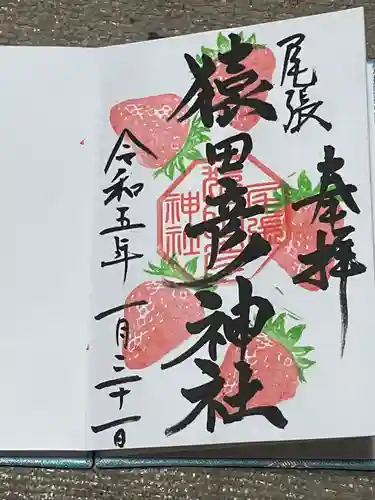 奉拝
尾張
猿田彦神社
令和五年
一月二十一日
尾張
猿田彦
神社